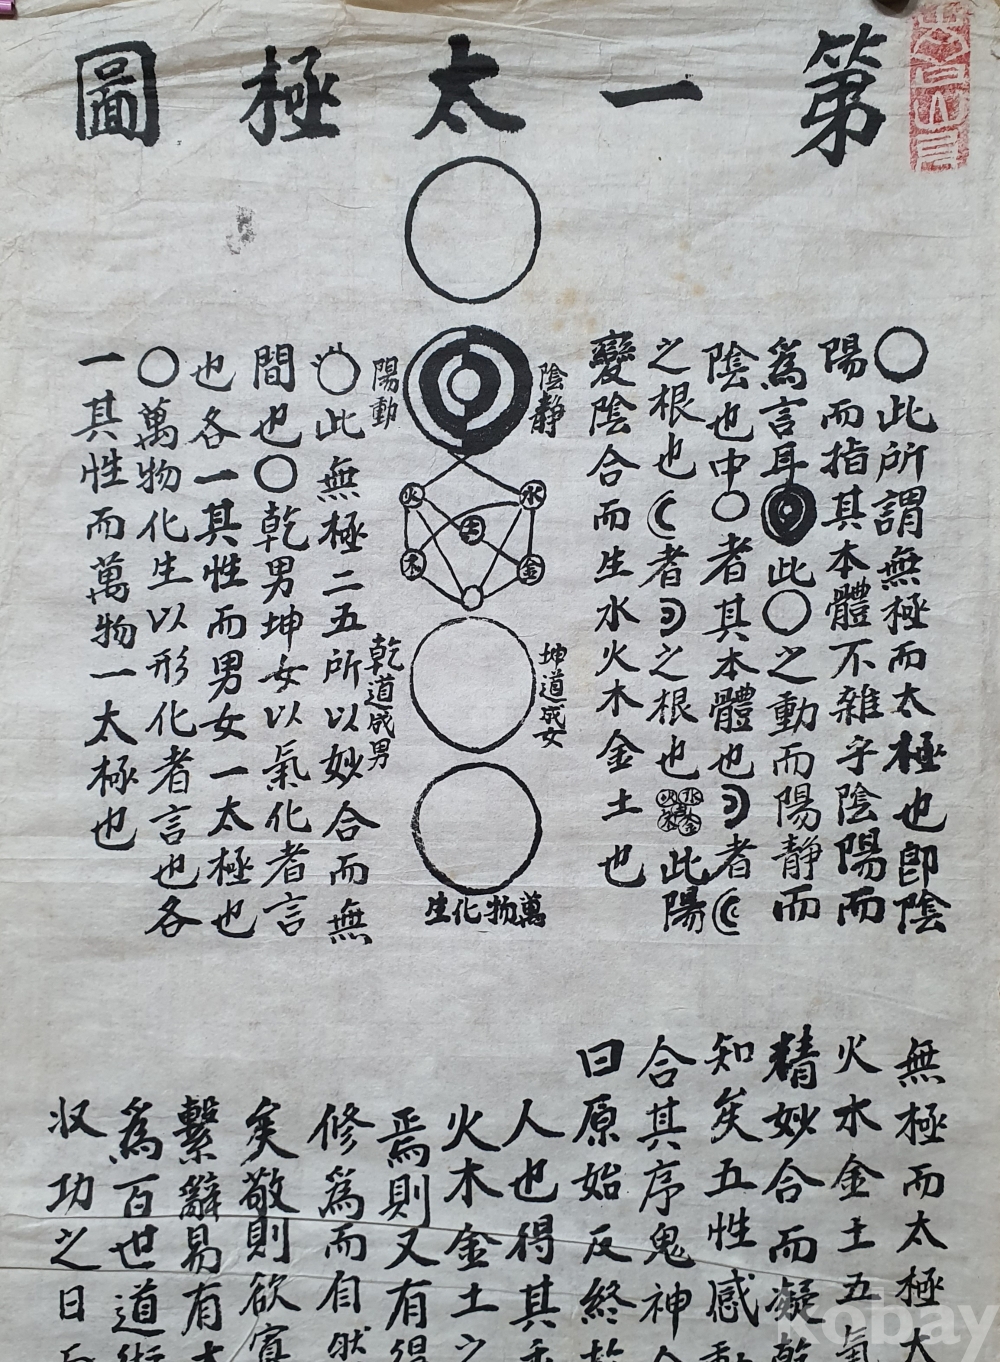 第一太極圖
○此所謂無極而太極也卽陰
陽而指其本體不雜乎陰陽而
爲言耳此○之動而陽靜而
陰也中○者其本體也☽者☾
之根也☾者☽之根也水火木金土此陽
變陰合而生水火木金土也
陰靜
陽動
火
水
土
木
金
坤道成女
乾道成男
萬物化生
○此無極二五所以妙合而無
間也○乾男坤女以氣化者言
也各一其性而男女一太極也
○萬物化生以形化者言也各
一其性而萬物一太極也
無極而太極大
火水金土五氣
精妙合而凝乾
知矣五性感動
合其序鬼神合
曰原始反終故
人也得其秀
火木金土之
焉則又有得
修爲而自然
矣敬則欲寡
繫辭易有太
爲百世道術
収功之日
kobay